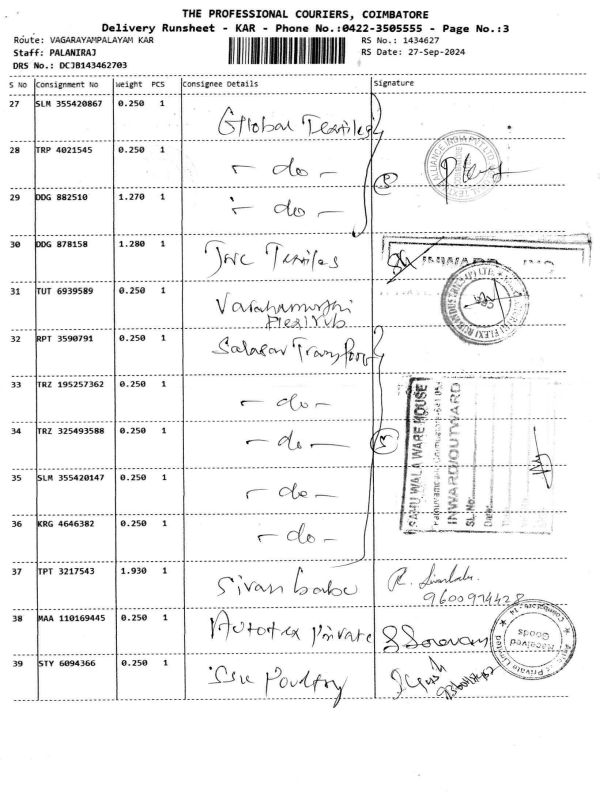 THE PROFESSIONAL COURIERS, COIMBATORE
Delivery Runsheet - KAR - Phone No.:0422-3505555 - Page No.:3
Route: VAGARAYAMPALAYAM KAR
RS No.: 1434627
Staff: PALANIRAJ
RS Date: 27-Sep-2024
DRS No.: DCJB143462703
S No Consignment No Weight PCS Consignee Details Signature
27 SLM 355420867 0.250 1 Global Textiles
28 TRP 4021545 0.250 1 - do -
29 DDG 882510 1.270 1 - do -
30 DDG 878158 1.280 1 Textiles
31 TUT 6939589 0.250 1 Varahamurthi
Flexirub
32 RPT 3590791 0.250 1 Salasar Transport
33 TRZ 195257362 0.250 1 - do -
34 TRZ 325493588 0.250 1 - do -
35 SLM 355420147 0.250 1 - do -
36 KRG 4646382 0.250 1 - do -
SAMU WALA WARE HOUSE
INWARD/OUTWARD
SL.No.
Date
37 TPT 3217543 1.930 1 Sivan babu
9600974428
38 MAA 110169445 0.250 1 Private
Received
Goods
39 STY 6094366 0.250 1 Poultry